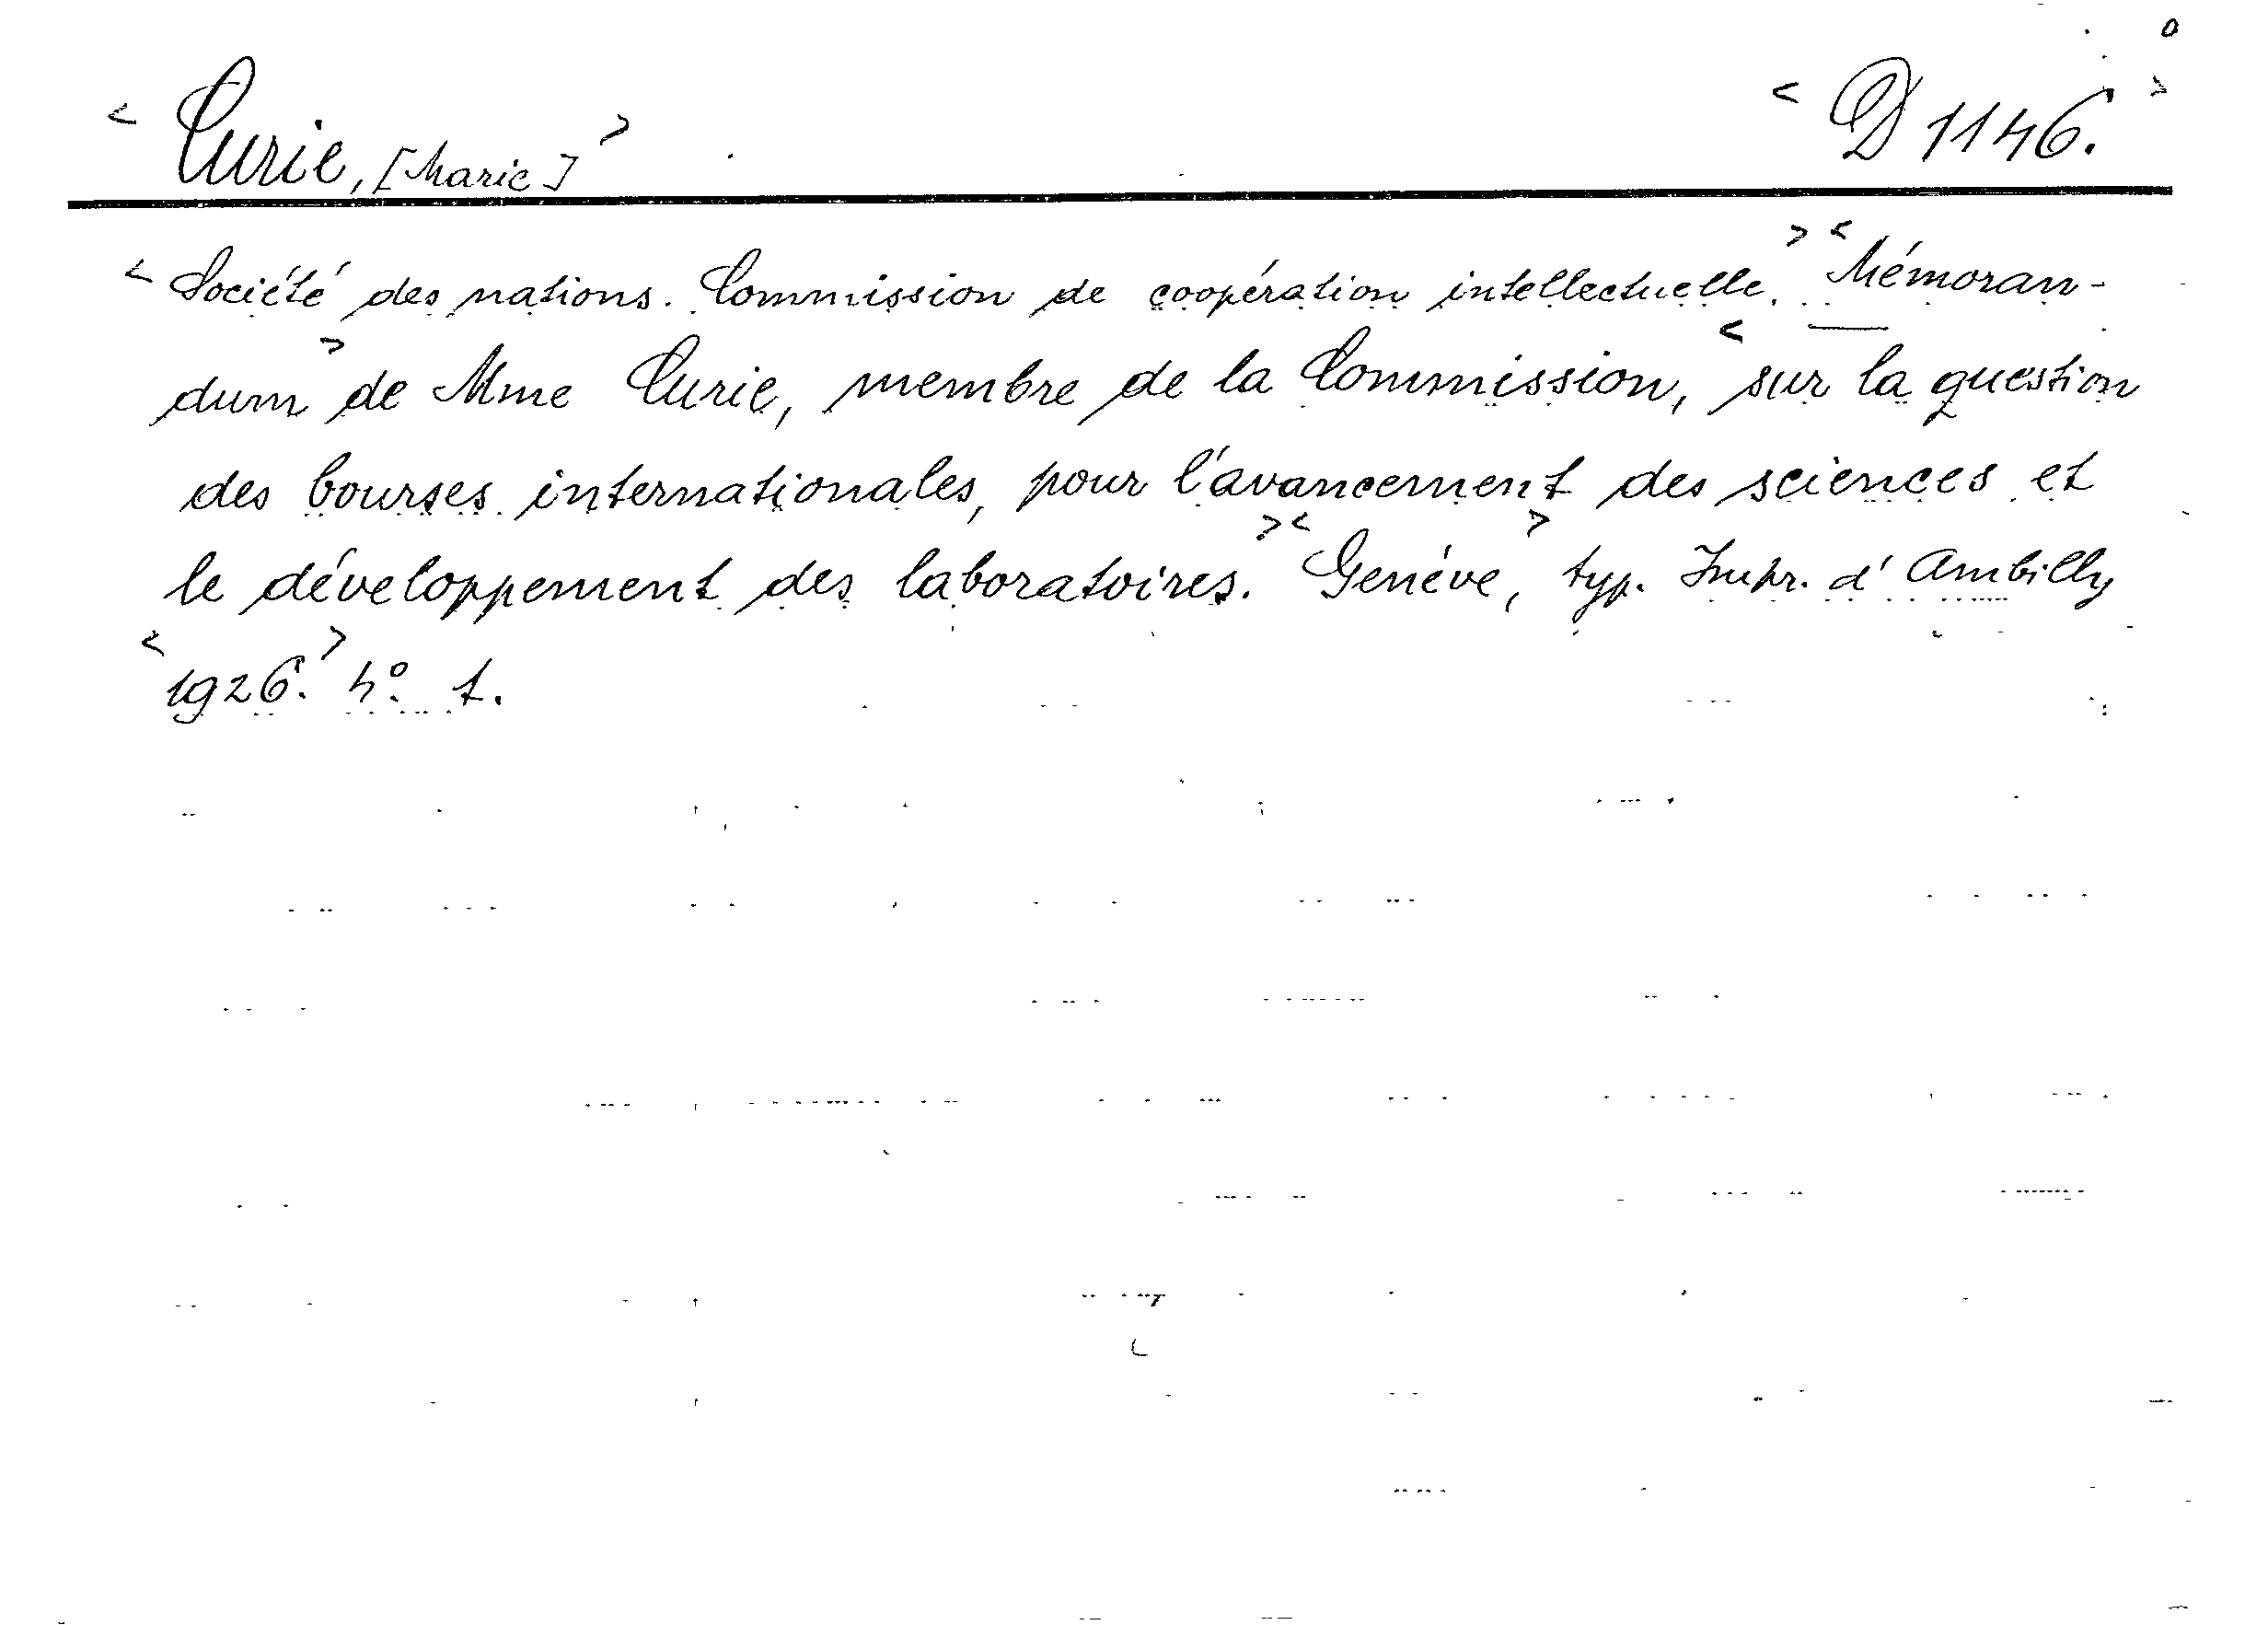 < Curie, [Marie] > < D 1146. >
< Société des nations. Commission de coopération intellectuelle. > < Mémoran-
dum > de Mme Curie, membre de la Commission, < sur la question
des bourses internationales, pour l'avancement des sciences et
le développement des laboratoires. > < Genève, > typ. Impr. d'Ambilly
< 1926. > 4°. t.